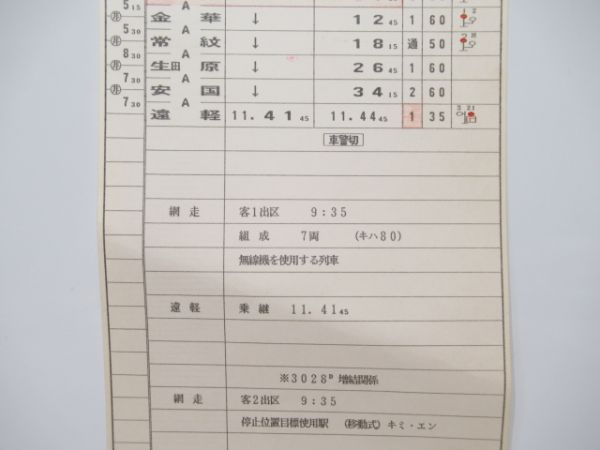 5 15 A
㊊ 金華 ↓ 12 45 1 60 2
5 30 A
㊊ 常紋 ↓ 18 15 通 50
8 30 A
㊊ 生田原 ↓ 26 45 1 60
7 30 A
㊊ 安国 ↓ 34 15 2 60
7 30 A
遠軽 11.41 45 11.44 45 1 35 3 21
車警切
網走 客1出区 9:35
組成 7両 (キハ80)
無線機を使用する列車
遠軽 乗継 11.41 45
※3028D 増結関係
網走 客2出区 9:35
停止位置目標使用駅 (移動式) キミ・エン